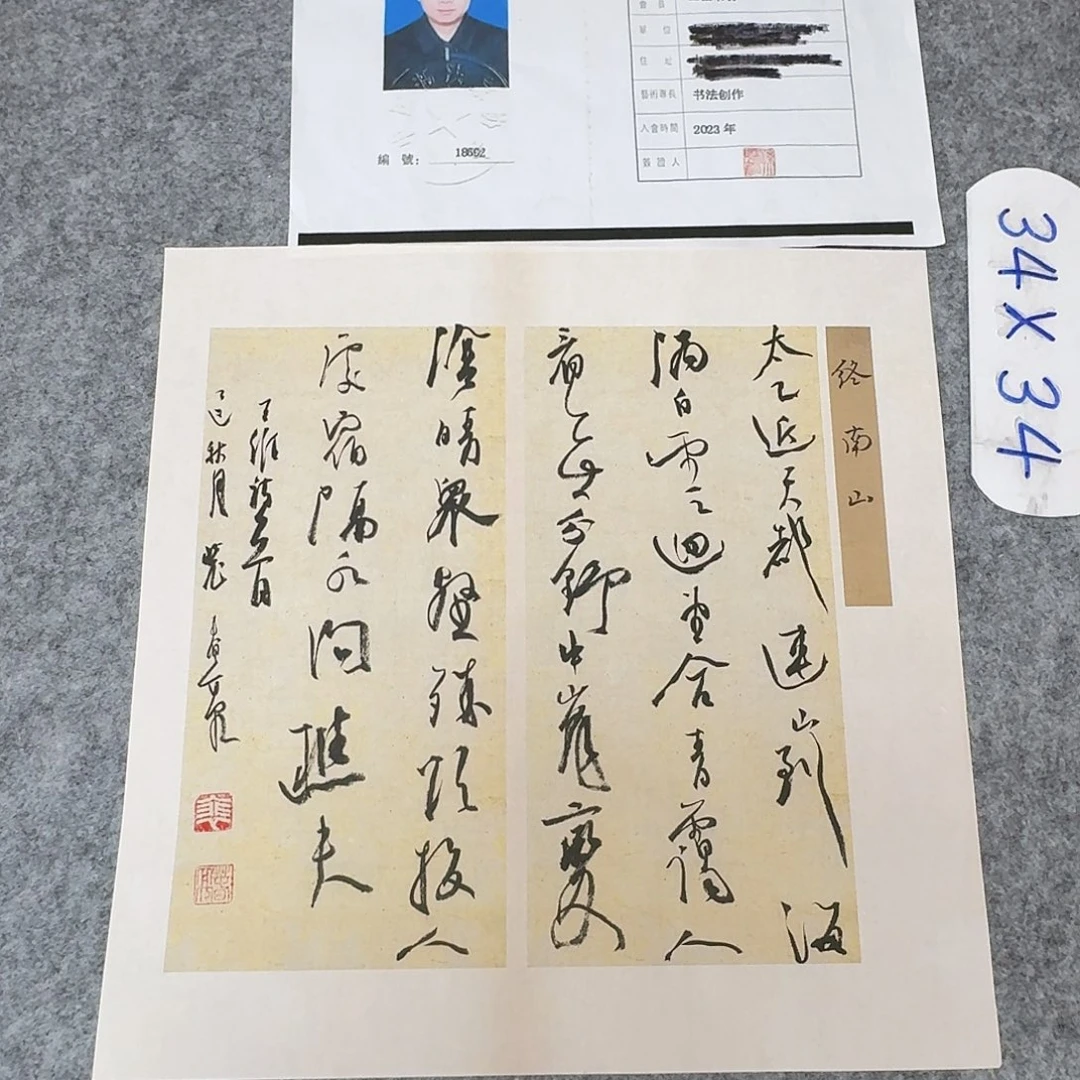 會員
單位
住址
藝術專長 书法创作
入會時間 2023 年
簽證人
編號: 18602
34 X 34
終南山
太乙近天都連山到海
隅白雲迴望合青靄入
看無分野中峰變
陰晴衆壑殊欲投人
處宿隔水問樵夫
王維詩一首
乙巳秋月